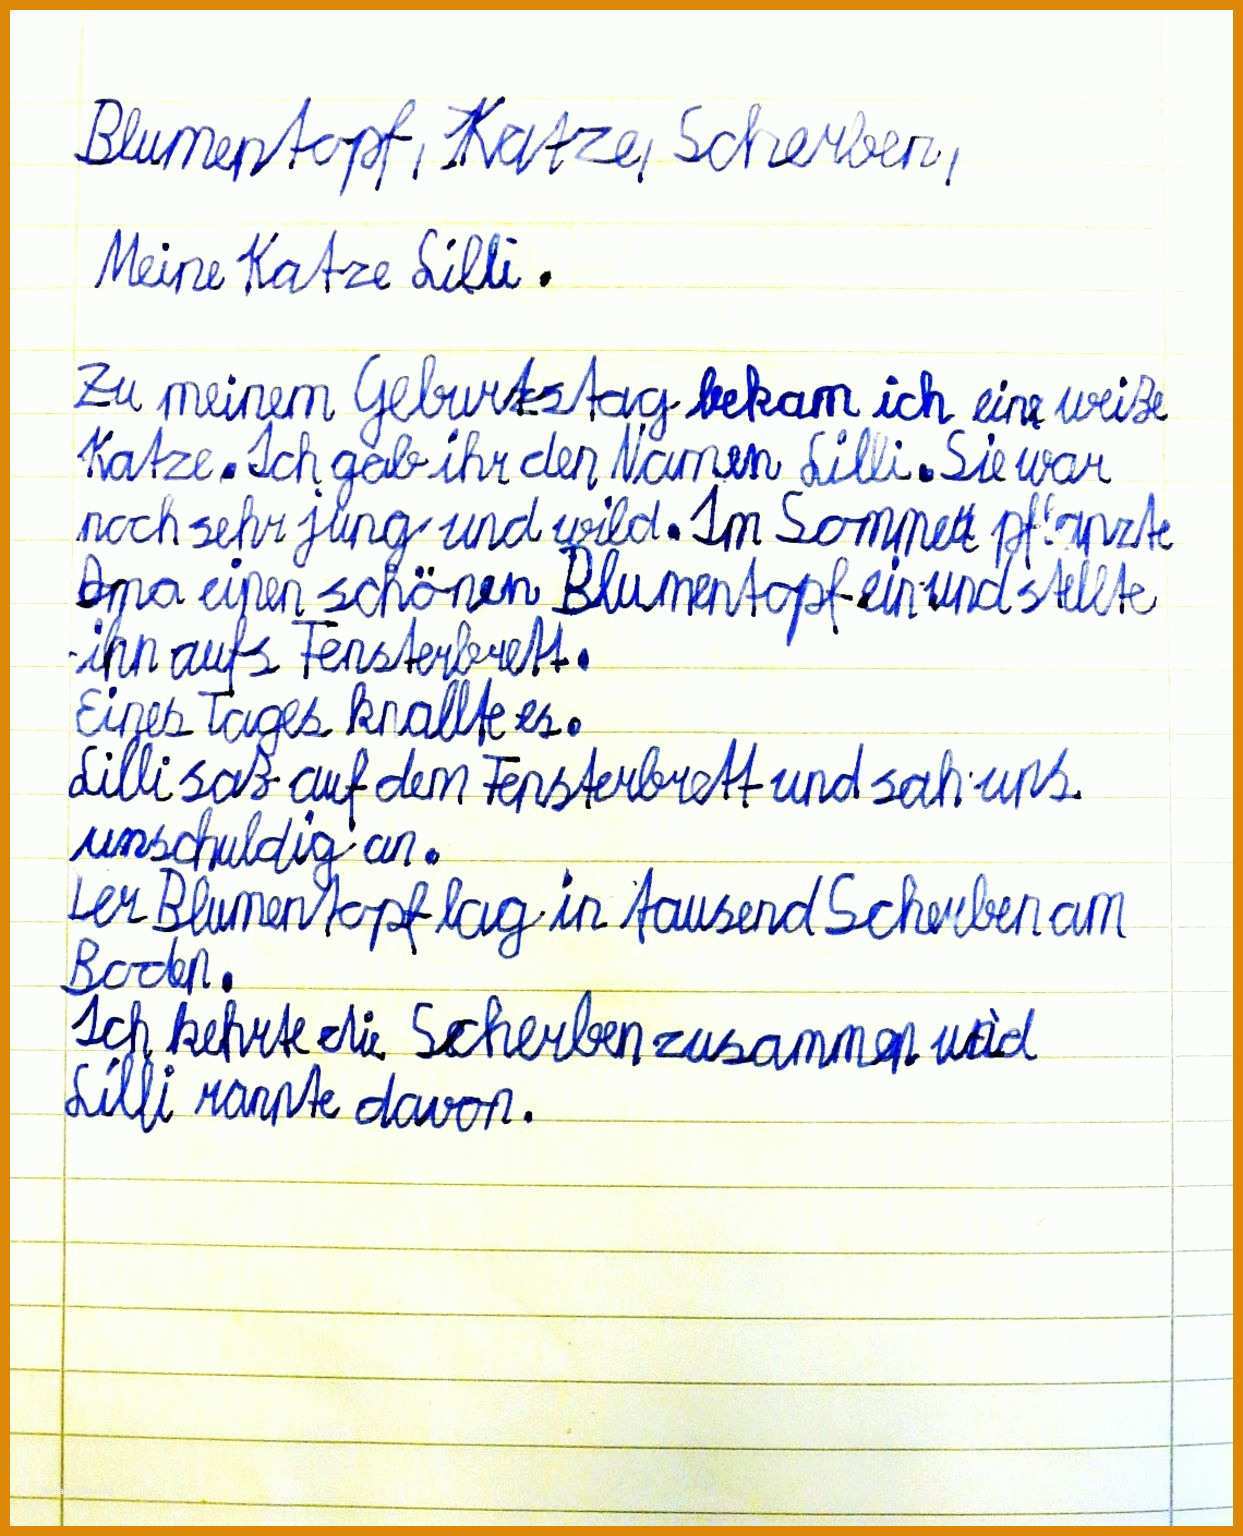 Blumentopf, Katze, Scherben,
Meine Katze Lilli.
Zu meinem Geburtstag bekam ich eine weiße
Katze. Ich gab ihr den Namen Lilli. Sie war
noch sehr jung und wild. Im Sommer pflanzte
Oma einen schönen Blumentopf ein und stellte
ihn aufs Fensterbrett.
Eines Tages knallte es.
Lilli saß auf dem Fensterbrett und sah uns
unschuldig an.
Der Blumentopf lag in tausend Scherben am
Boden.
Ich kehrte die Scherben zusammen und
Lilli rannte davon.